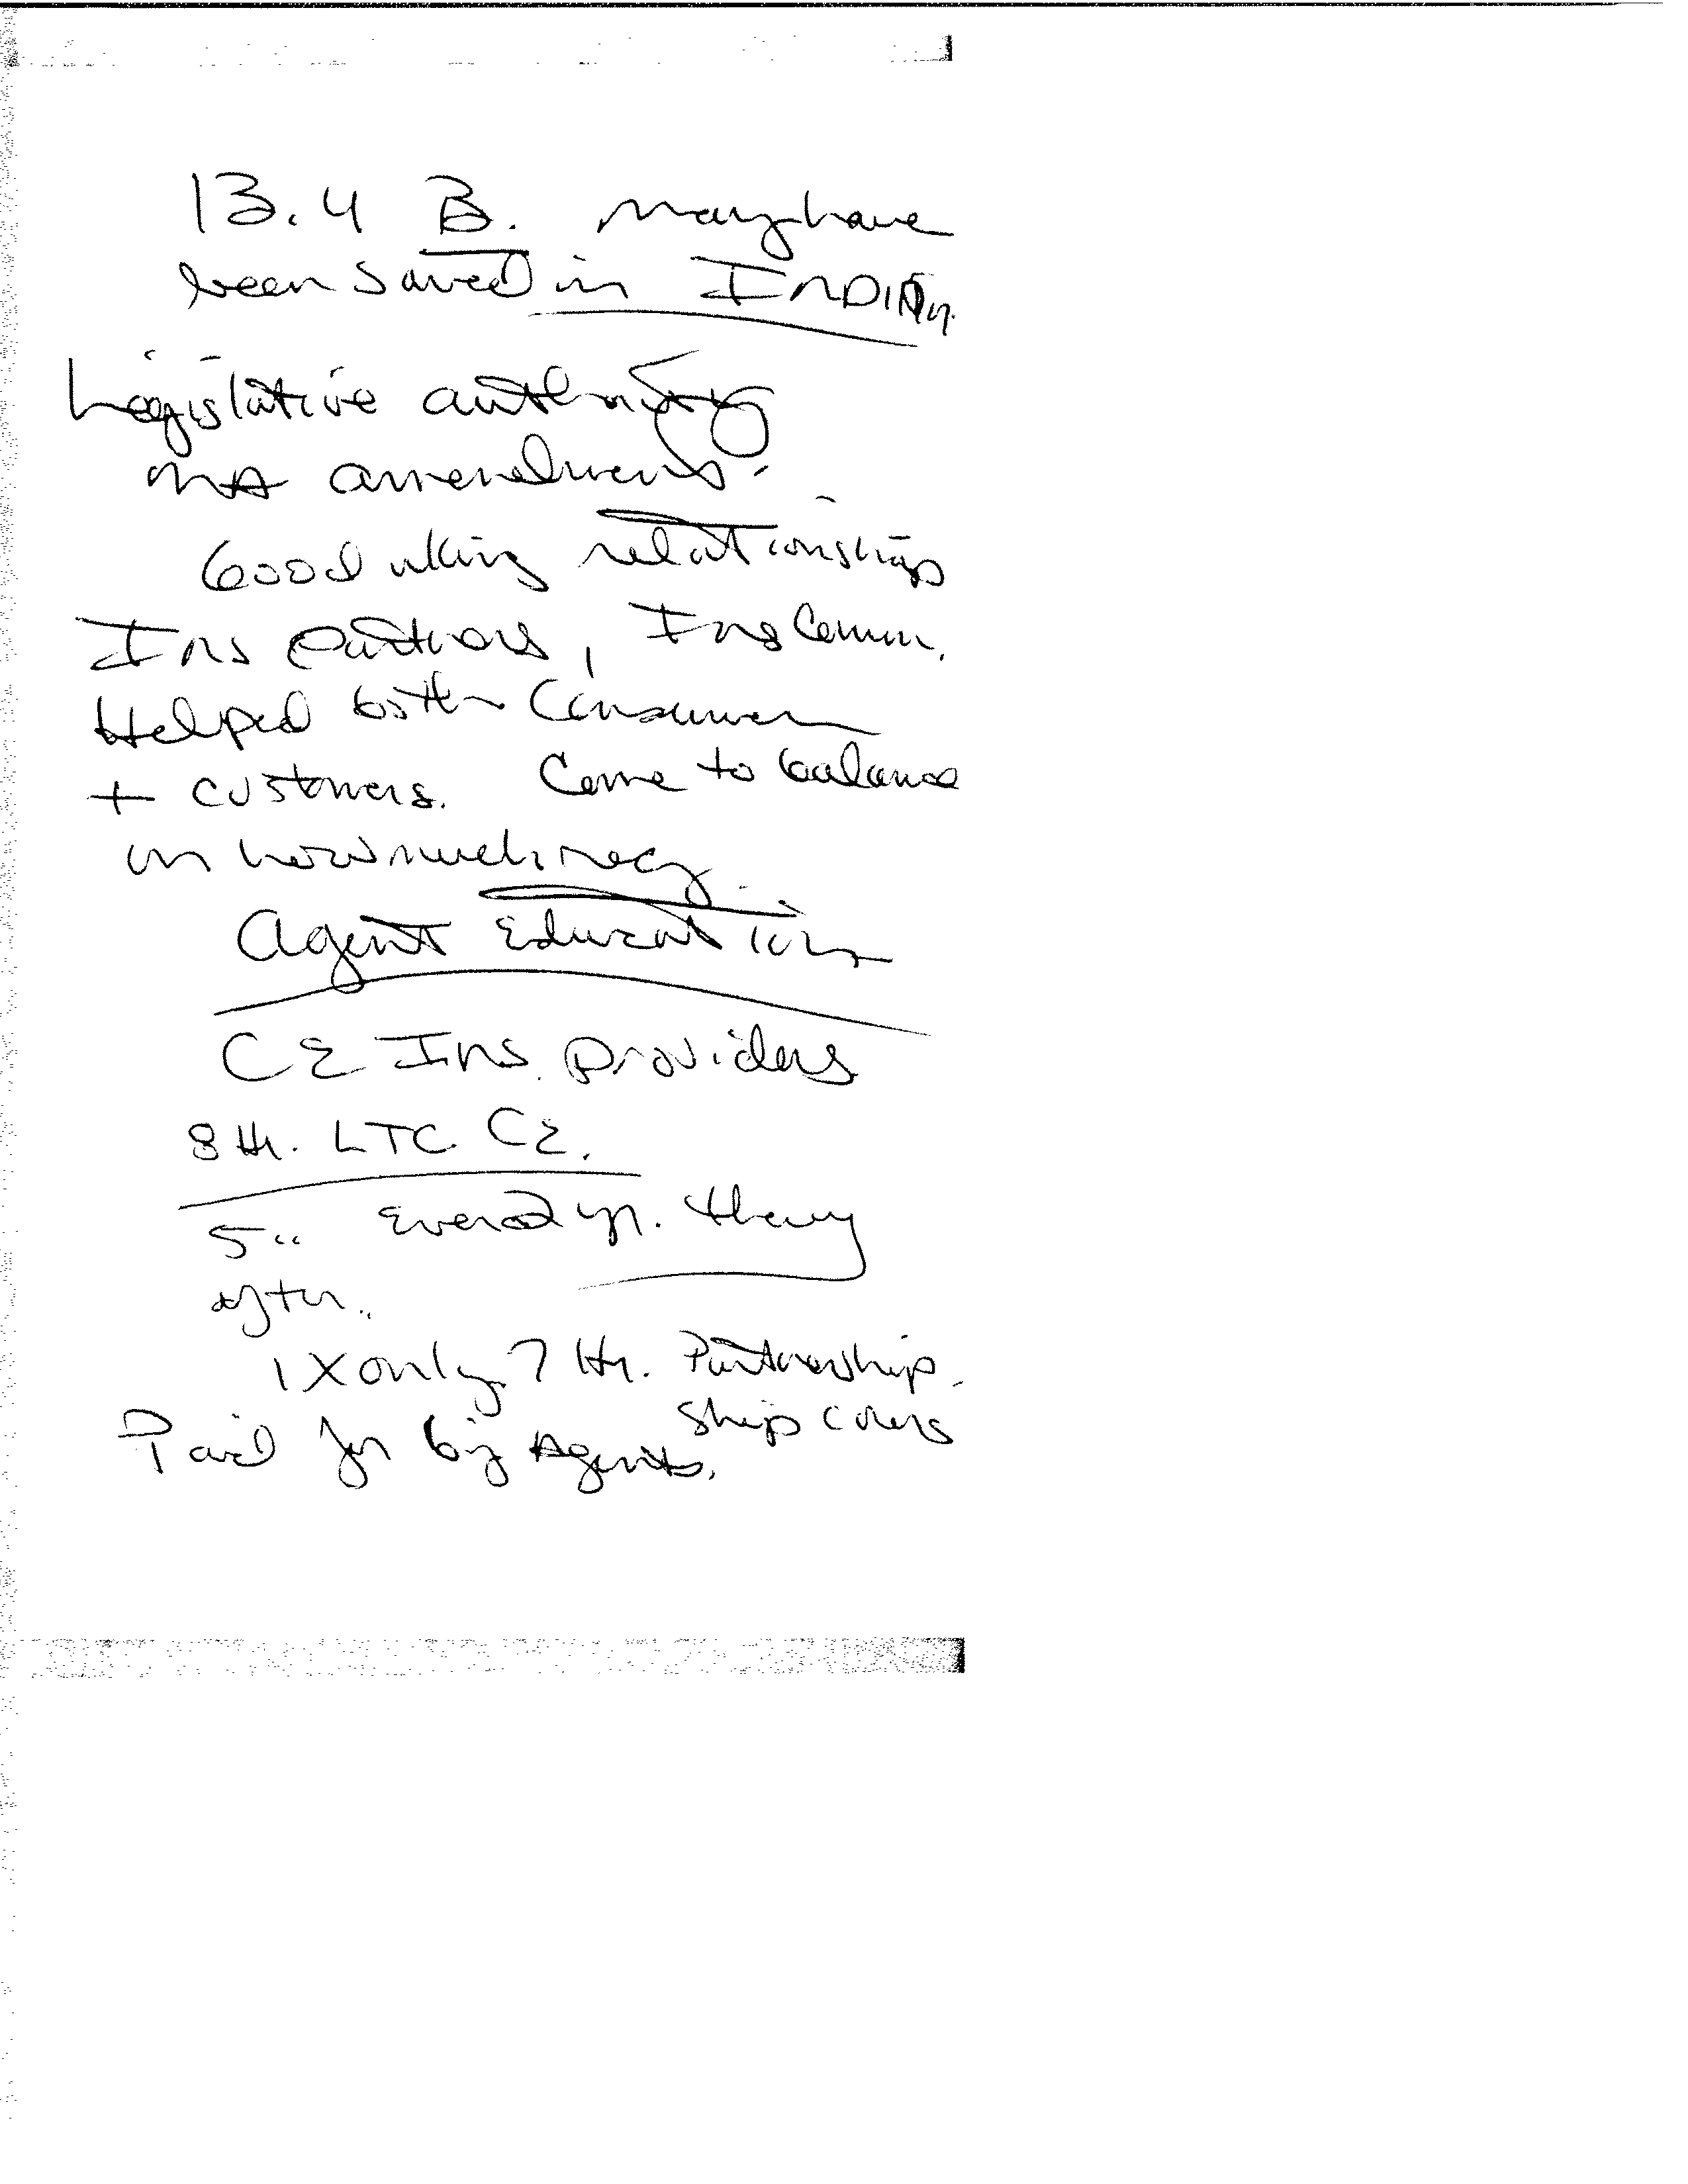 13.4 B. may have
been saved in INDIAn.
Legislative authority
MA amendment.
Good wking relationships
Ins partners, Ins Comm.
Helped both Consumer
+ customers. Come to balance
on how much necy
Agent Education
CE Ins. providers
8 Hr. LTC CE.
5 " Every 2 yr. they
after..
1X only 7 Hr. Partnership.
Ship covers
Paid for by Agents.